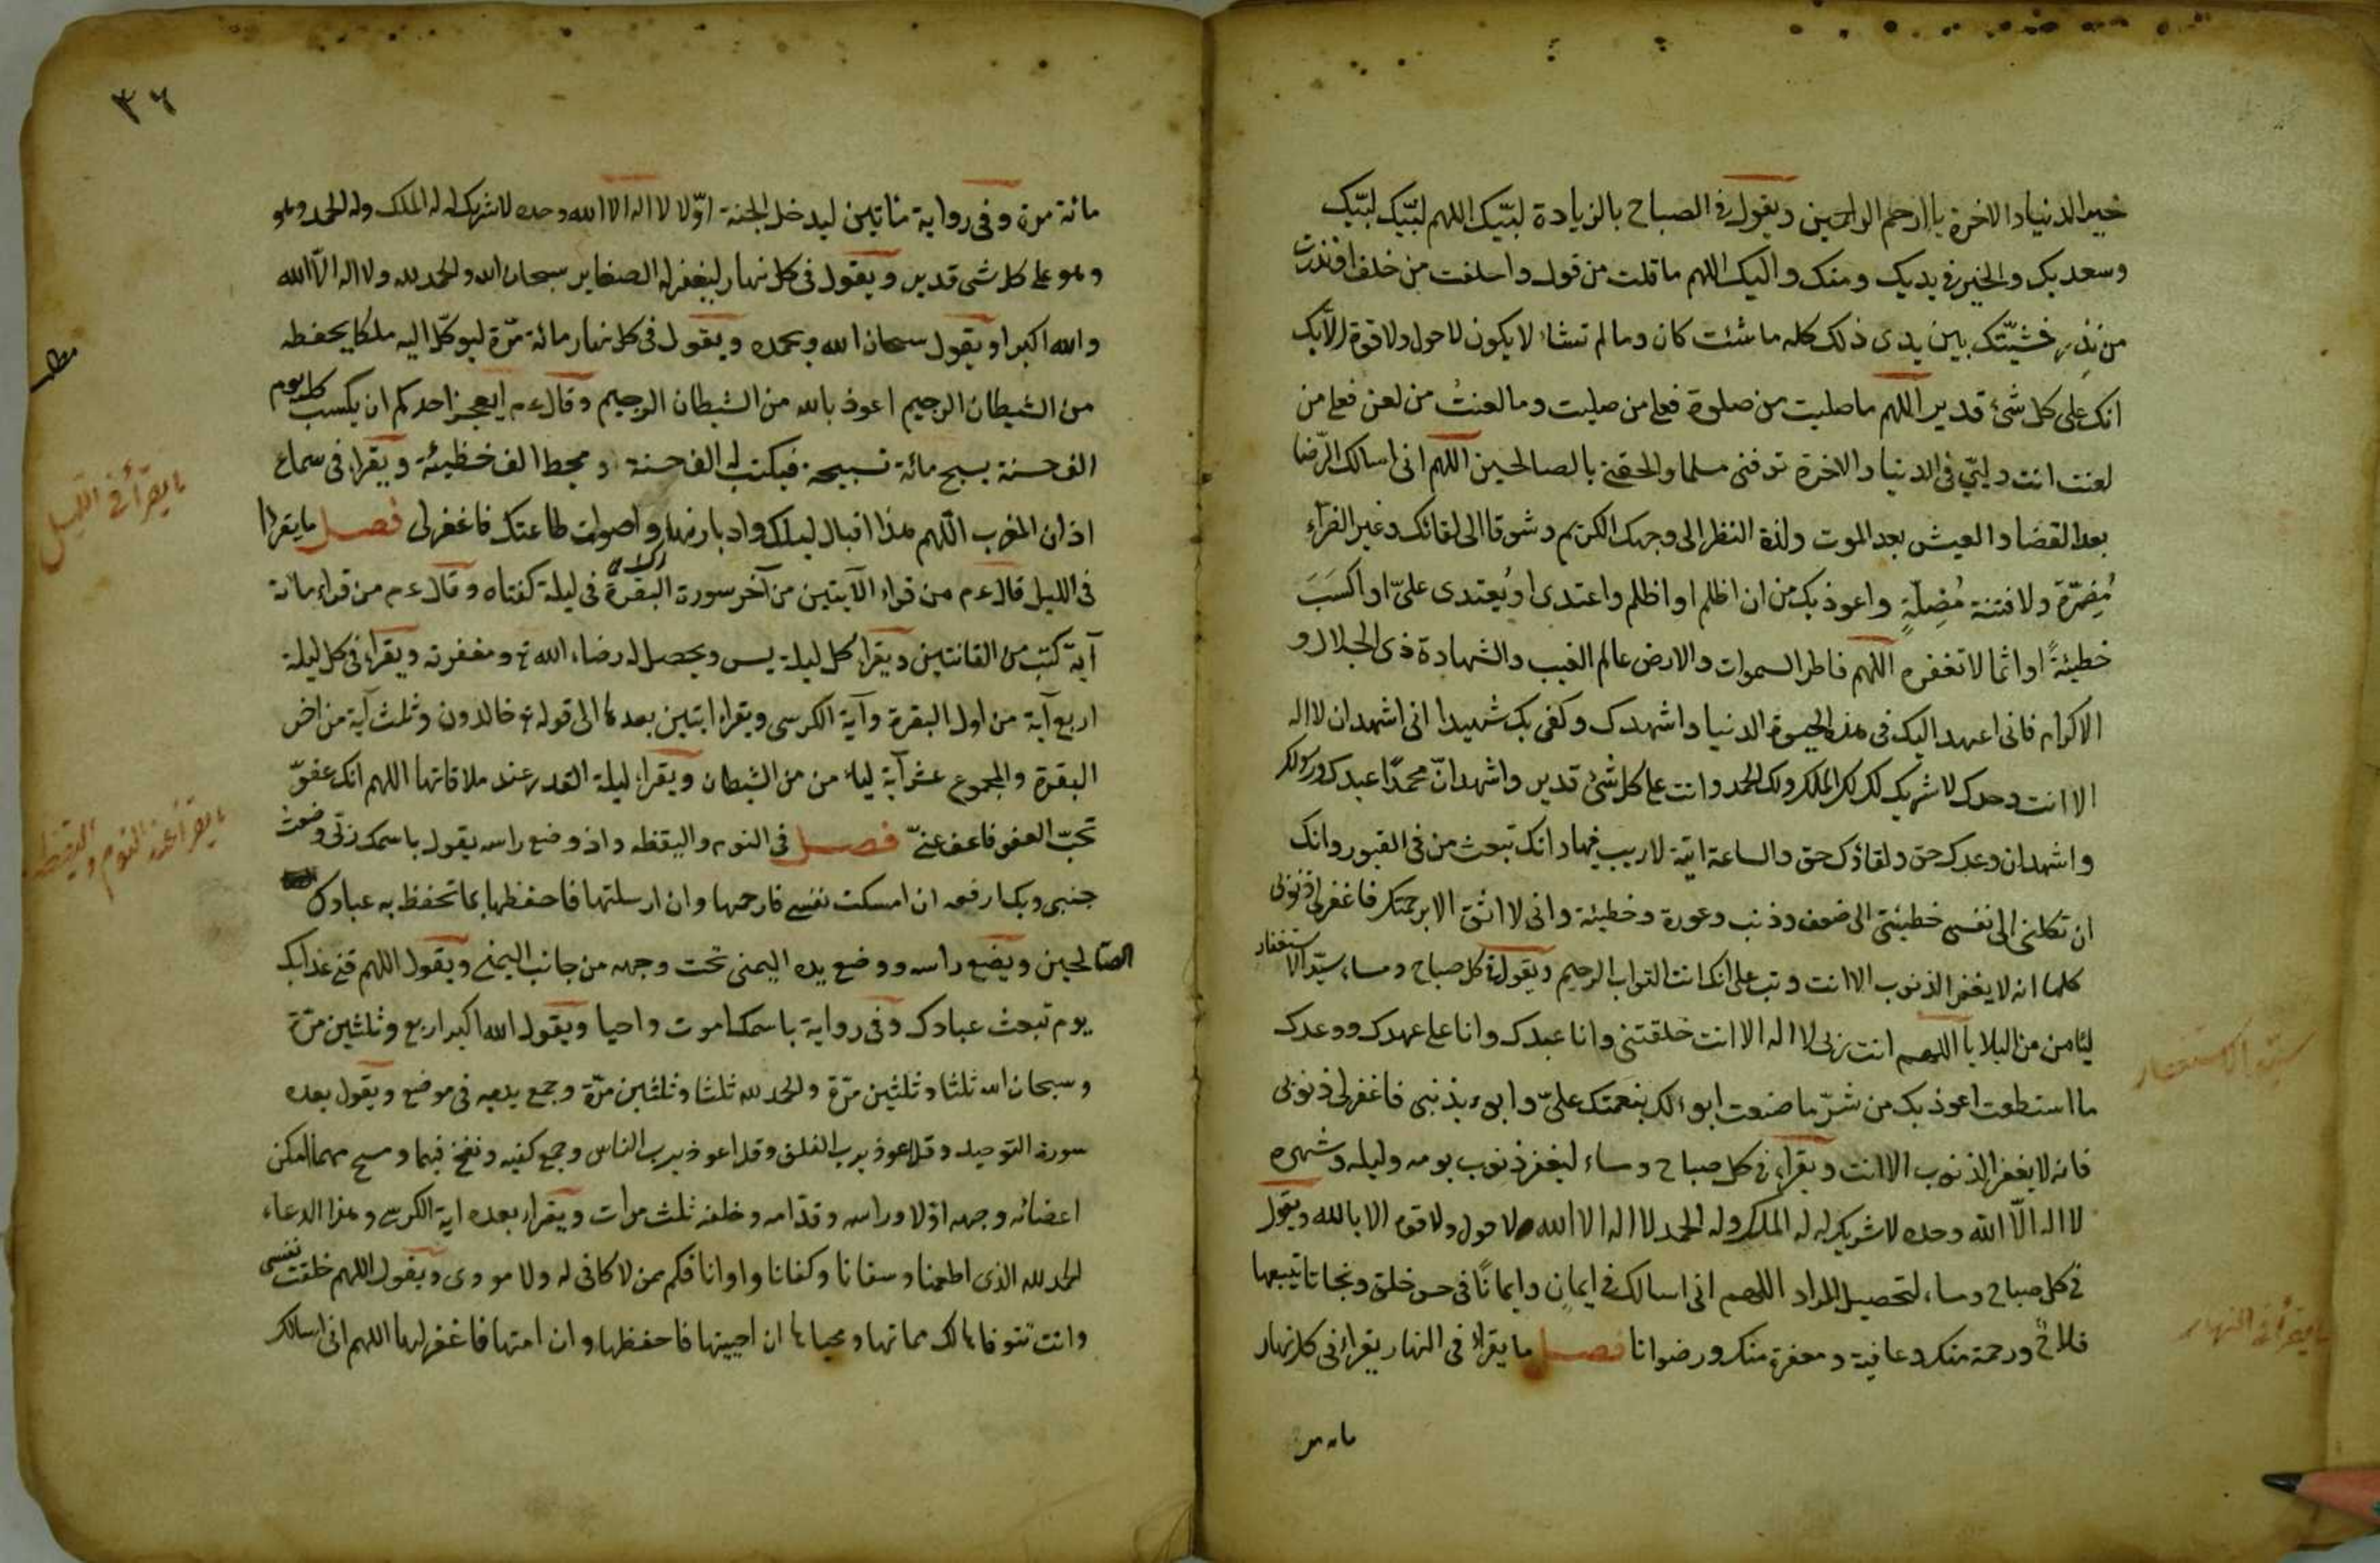 خير الدنيا والاخرة يا ارحم الراحمين ويقول في الصباح بالزيادة لبّيك اللهم لبّيك لبّيك
وسعديك والخير في يديك ومنك واليك اللهم ما قلت من قول واحلفت من خلف او نذرت
من نذر فمشيّتك بين يدى ذلك كله ما شئت كان وما لم تشاء لا يكون لا حول ولا قوة الا بك
انك على كل شئ قدير اللهم ما صليت من صلوة فعلى من صليت وما لعنت من لعن فعلى من
لعنت انت وليّي في الدنيا والاخرة توفنى مسلما والحقنى بالصالحين اللهم انى اسالك الرّضا
بعد القضا والعيش بعد الموت ولذة النظر الى وجهك الكريم وشوقا الى لقائك وغير الضراء
مُضِرّة ولا فتنة مُضِلّةٍ واعوذ بك من ان اظلم او اظلم واعتدى او يُعتدى علىّ او اكسَبَ
خطيئةً او اثما لا تغفره اللهم فاطر السموات والارض عالم الغيب والشهادة ذى الجلال و
الاكرام فانى اعهد اليك فى هذه الحيوة الدنيا واشهدك وكفى بك شهيدا انى اشهد ان لا اله
الا انت وحدك لا شريك لك لك الملك ولك الحمد وانت على كل شئ قدير واشهد انّ محمدًا عبدك ورسولك
واشهد ان وعدك حق ولقاؤك حق والساعة اتية لا ريب فيها وانك تبعث من فى القبور وانك
ان تكلنى الى نفسى خطيئتى الى ضعف وذنب وعورة وخطيئة وانى لا اثق الا برحمتك فاغفر لى ذنوبى
كلها انه لا يغفر الذنوب الا انت وتب على انك انت التواب الرحيم ويقول في كل صباح ومساء سيّد الاستغفار
ليئامن من البلايا اللهم انت ربى لا اله الا انت خلقتنى وانا عبدك وانا على عهدك ووعدك
ما استطعت اعوذ بك من شرّ ما صنعت ابوء لك بنعمتك علىّ وابوء بذنبى فاغفر لى ذنوبى
فانه لا يغفر الذنوب الا انت ويقراء في كل صباح ومساء ليغفر ذنوب يومه وليله وشهره
لا اله الّا الله وحده لا شريك له له الملك وله الحمد لا اله الا الله ولا حول ولا قوة الا بالله ويقول
في كل صباح ومساء لتحصيل المراد اللهم انى اسالك فى ايمان وايمانًا فى حسن خلق ونجاتا تتبعها
فلاح ورحمة منك وعافية ومغفرة منك ورضوانا فصل ما يقراء فى النهار يقراء فى كل نهار
سيّد الاستغفار
ما يقرأ في النهار
مائة مر
٣٦
مائة مرة وفى رواية مئاتين ليدخل الجنة اوّلا لا اله الا الله وحده لا شريك له له الملك وله الحمد وهو
وهو على كل شى قدير ويقول فى كل نهار ليغفر له الصغاير سبحان الله والحمد لله ولا اله الّا الله
والله اكبر او يقول سبحان الله وبحمده ويقول فى كل نهار مائة مرّة ليوكّل اليه ملكا يحفظه
من الشيطان الرجيم اعوذ بالله من الشيطان الرجيم وقال ءم ايعجز احدكم ان يكسب كل يوم
الف حسنة يسبح مائة تسبيحة فيكتب له الف حسنة ومحط الف خطيئة ويقراء فى سماع
اذان المغرب اللهم هذا اقبال ليلك وادبار نهارك واصوات طاعتك فاغفر لى فصل ما يقراء
فى الليل قال ءم من قراء الآيتين من آخر سورة البقرة فى ليلة كفتاه وقال ءم من قراء مائة
آية كتب من القانتين ويقراء كل ليلة يس ويحصل له رضاء الله تع ومغفرته ويقراء فى كل ليلة
اربع آية من اول البقرة وآية الكرسى ويقراء ايتين بعدها الى قوله تع خالدون وثلث آية من اخر
البقرة والمجموع عشر آية ليئامن من الشيطان ويقراء ليلة القدر عند ملاقاتها اللهم انك عفوّ
تحبّ العفو فاعف عنّى فصل فى النوم واليقظه واذ وضع راسه يقول باسمك ربّى وضعت
جنبى وبك ارفعه ان امسكت نفسى فارحمها وان ارسلتها فاحفظها بما تحفظ به عبادك
الصّالحين ويضع راسه ووضع يده اليمنى تحت وجهه من جانب اليمنى ويقول اللهم قنى عذابك
يوم تبعث عبادك وفى رواية باسمك اموت واحيا ويقول الله اكبر اربع وثلثين مرّة
وسبحان الله ثلثا وثلثين مرّة والحمد لله ثلثا وثلثين مرّة وجمع يديه فى موضع ويقول بعده
سورة التوحيد وقل اعوذ برب الفلق وقل اعوذ برب الناس وجمع كفيه ونفخ فيهما ومسح مهما امكن
اعضائه وجهه اوّلا وراسه وقدّامه وخلفه ثلث مرات ويقراء بعده اية الكرسى وهذا الدعاء
الحمد لله الذى اطعمنا وسقانا وكفانا واوانا فكم ممن لا كافى له ولا مووى ويقول اللهم خلقت نفسى
وانت تتوفاها لك مماتها ومحياها ان احييتها فاحفظها وان امتها فاغفر لها اللهم انى اسالك
ما يقرأ في الليل
ما يقرأ عند النوم واليقظه